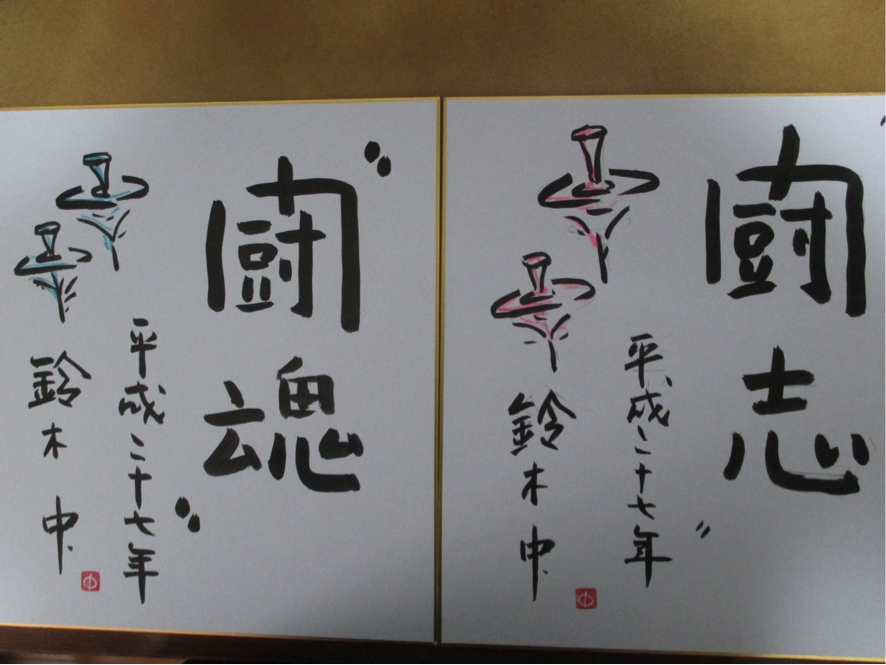 〝闘志〟
平成二十七年
鈴木中
〝闘魂〟
平成二十七年
鈴木中